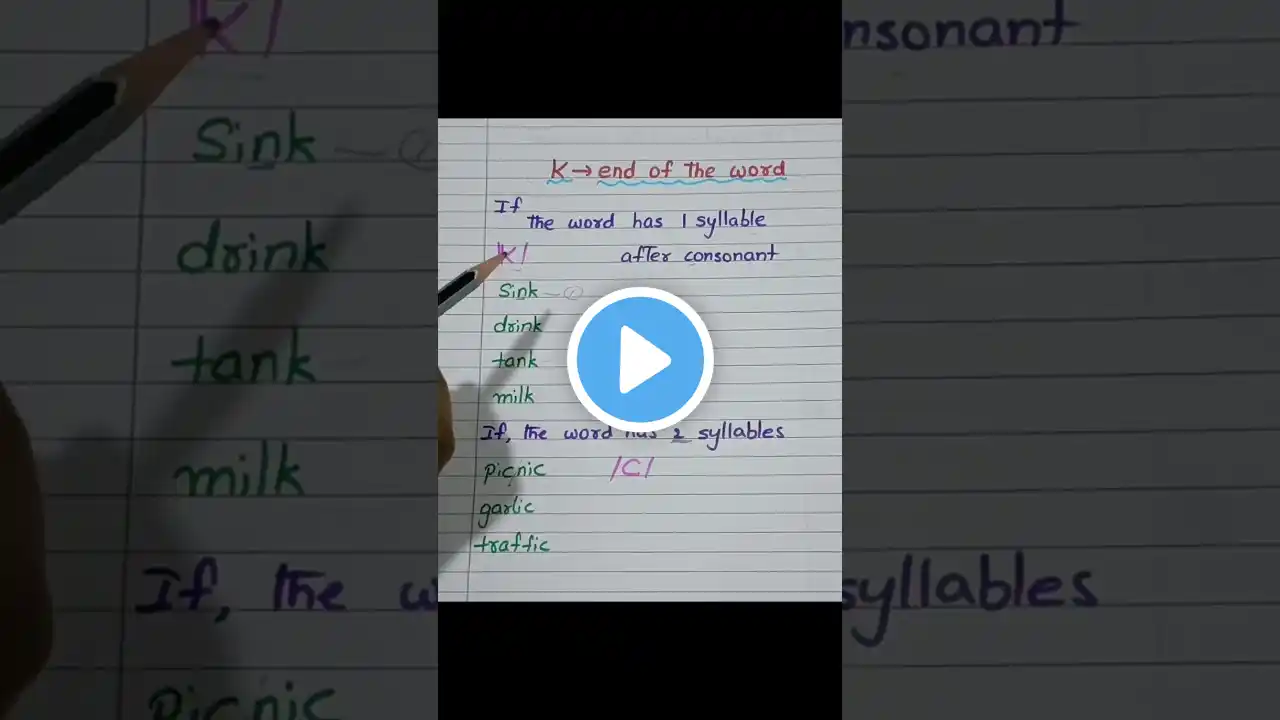 K → end of the word
If
the word has 1 syllable
/K/ after consonant
Sink - ①
drink
tank
milk
If, the word has 2 syllables
picnic /C/
garlic
traffic